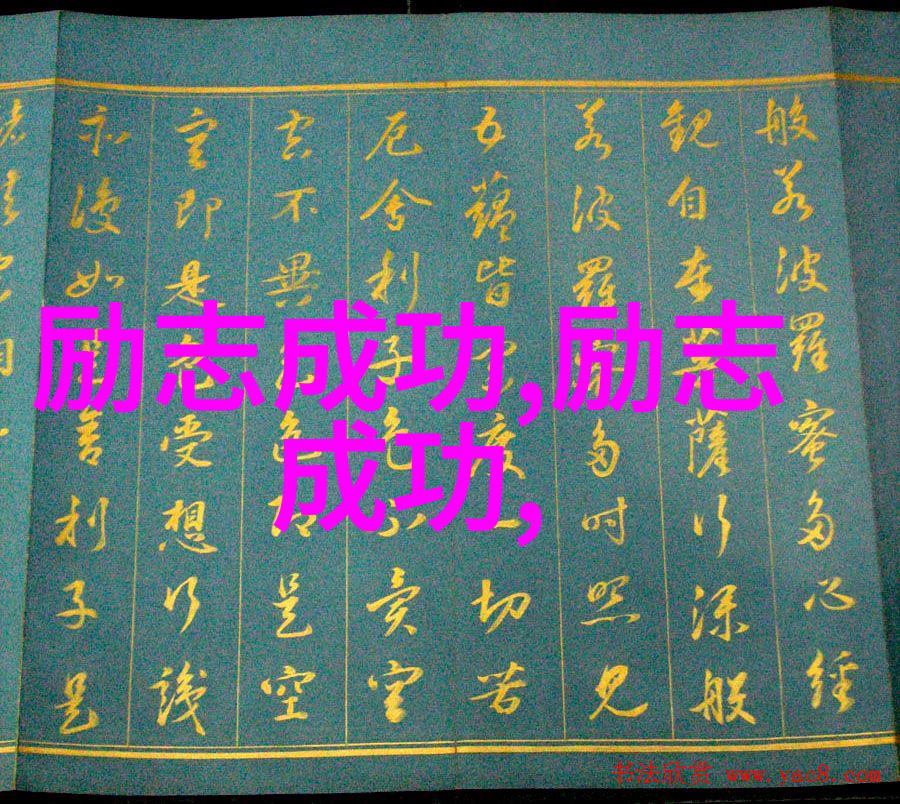 般若波羅蜜多心經
觀自在菩薩行深般
若波羅蜜多時照見
五蘊皆空度一切苦
厄舍利子色不異空
空不異色色即是空
空即是色受想行識
亦復如是舍利子是
励志成功,励志
成功,
书法欣赏 www.yac8.com